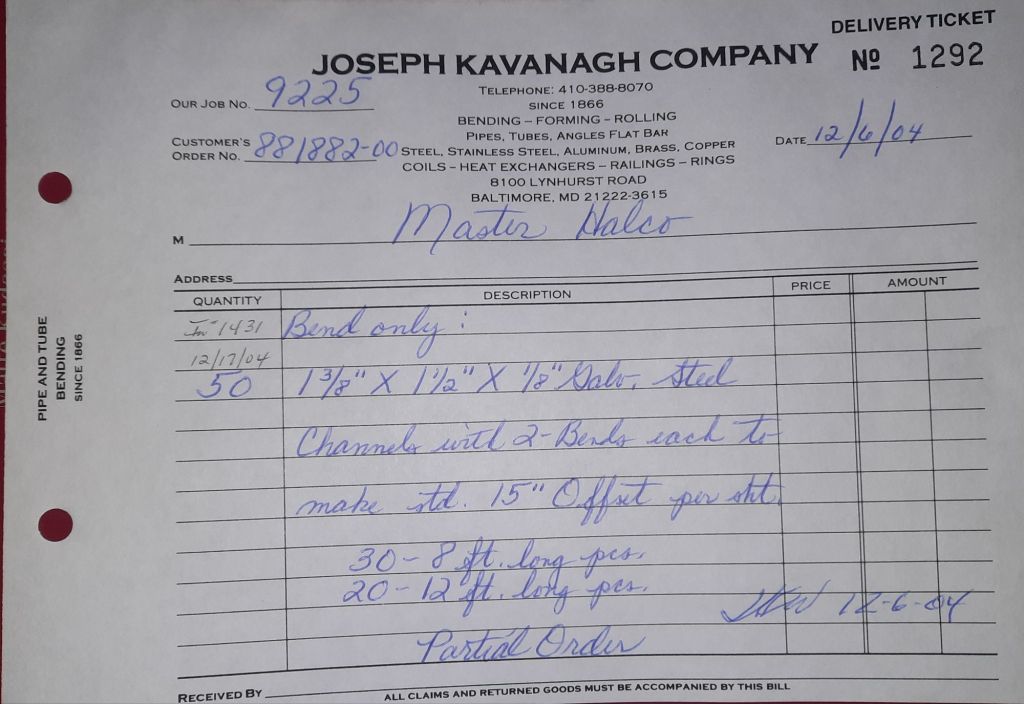 DELIVERY TICKET
JOSEPH KAVANAGH COMPANY
Nº 1292
TELEPHONE: 410-388-8070
OUR JOB NO. 9225
SINCE 1866
BENDING – FORMING – ROLLING
PIPES, TUBES, ANGLES FLAT BAR
CUSTOMER'S ORDER NO. 881882-00
DATE 12/6/04
STEEL, STAINLESS STEEL, ALUMINUM, BRASS, COPPER
COILS – HEAT EXCHANGERS – RAILINGS – RINGS
8100 LYNHURST ROAD
BALTIMORE, MD 21222-3615
M Master Halco
ADDRESS
QUANTITY DESCRIPTION PRICE AMOUNT
1431 Bend only :
12/17/04
50 1 3/8" X 1 1/2" X 1/8" Galv. Steel
Channels with 2-Bends each to
make std. 15" Offset per sht.
30 – 8 ft. long pcs.
20 – 12 ft. long pcs.
12-6-04
Partial Order
RECEIVED BY
ALL CLAIMS AND RETURNED GOODS MUST BE ACCOMPANIED BY THIS BILL
PIPE AND TUBE
BENDING
SINCE 1866